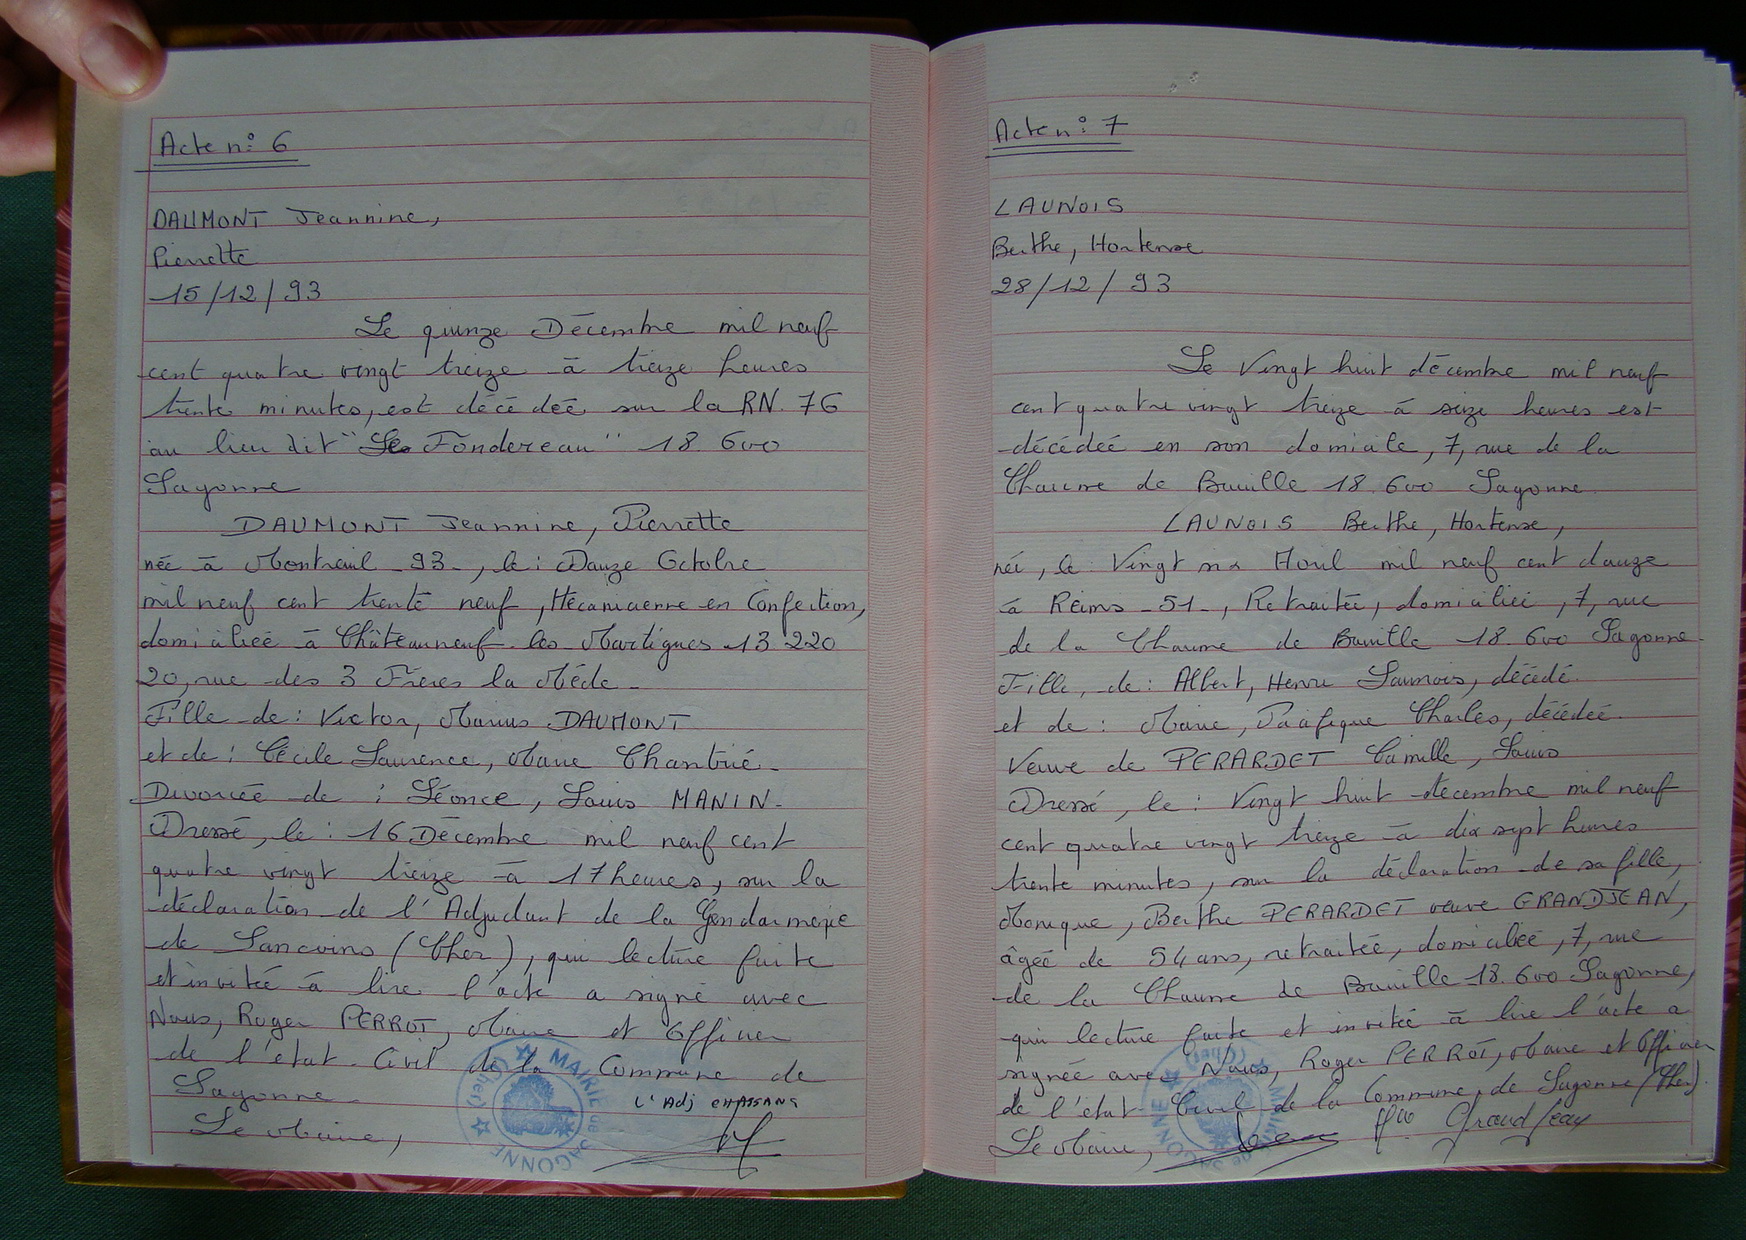 Acte n: 6
DAUMONT Jeannine,
Pierrette
15/12/93
Le quinze Décembre mil neuf
cent quatre vingt treize à treize heures
trente minutes, est décédée sur la RN. 76
au lieu dit "Le Fondereau" 18.600
Sagonne
DAUMONT Jeannine, Pierrette
née à Montreuil -93-, le: Douze Octobre
mil neuf cent trente neuf, Mécanicienne en Confection,
domiciliée à Châteauneuf-les-Martigues 13.220
20, rue des 3 Frères la Mède-
Fille de: Victor, Marius DAUMONT
et de: Cécile Laurence, Marie
Divorcée de: Léonce, Louis MANIN-
Dressé, le: 16 Décembre mil neuf cent
quatre vingt treize à 17 heures, sur la
déclaration de l'Adjudant de la Gendarmerie
de Sancoins (Cher), qui lecture faite
et invité à lire l'acte a signé avec
Nous, Roger PERROT, Maire et Officier
de l'état-Civil de la Commune de
Sagonne-
L'Adj CHASSANG
Le Maire,
MAIRIE de SAGONNE (Cher)
Acte n: 7
LAUNOIS
Berthe, Hortense
28/12/93
Le Vingt huit décembre mil neuf
cent quatre vingt treize à seize heures est
décédée en son domicile, 7, rue de la
Chaume de 18.600 Sagonne
LAUNOIS Berthe, Hortense,
née, le Vingt six mil neuf cent douze
à Reims -51-, Retraitée, domiciliée, 7, rue
de la Chaume de 18.600 Sagonne-
Fille, de: Albert, Henri Launois, décédé.
et de: Marie, Charles, décédée.
Veuve de PERARDET Camille, Louis
Dressé, le: Vingt huit décembre mil neuf
cent quatre vingt treize à dix sept heures
trente minutes, sur la déclaration de sa fille,
Monique, Berthe PERARDET veuve GRANDJEAN,
âgée de 54 ans, retraitée, domiciliée, 7, rue
de la Chaume de 18.600 Sagonne,
qui lecture faite et invitée à lire l'acte a
signée avec Nous, Roger PERROT, Maire et Officier
de l'état-Civil de la Commune, de Sagonne (Cher).
Le Maire, Grandjean
MAIRIE de SAGONNE (Cher)